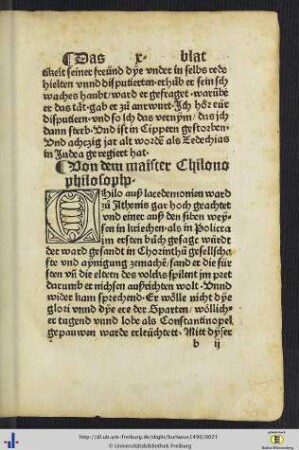 Das x. blat
tikeit seiner freünd dye vnder in selbs rede
hielten vnnd disputierten. erhůb er sein sch
waches haubt/ ward er gefraget. warūbe
er das tåt. gab er zů antwurt. Ich hör eür
disputiern. vnd so ich das vernym/ das ich
dann sterb. Vnd ist in Cippern gestorben.
Vnd achczig jar alt word̄e als Zedechias
in Judea geregiert hat.
Von dem maister Chilono
philosopho.
Chilo auß lacedemonien ward
zů Athenis gar hoch geachtet
vnd einer auß den siben wey-
sen in kriechen. als in Policra
im ersten bůch gesagt würdt
der ward gesandt in Chorinthū gesellscha
fte vnd aynigung zemachē. fand er die für
sten vn̄ die eltern des volcks spilent im pret
darumb er nichsen außrichten wolt. Vnnd
wider kam sprechend. Er wölle nicht dye
glori vnnd dye ere der Sparten/ wöllich-
er tugend vnnd lobe als Constantinopel
gepauwen warde erleüchtett. Mitt dyser
b ij
http://dl.ub.uni-freiburg.de/diglit/burlaeus1490/0021
© Universitätsbibliothek Freiburg